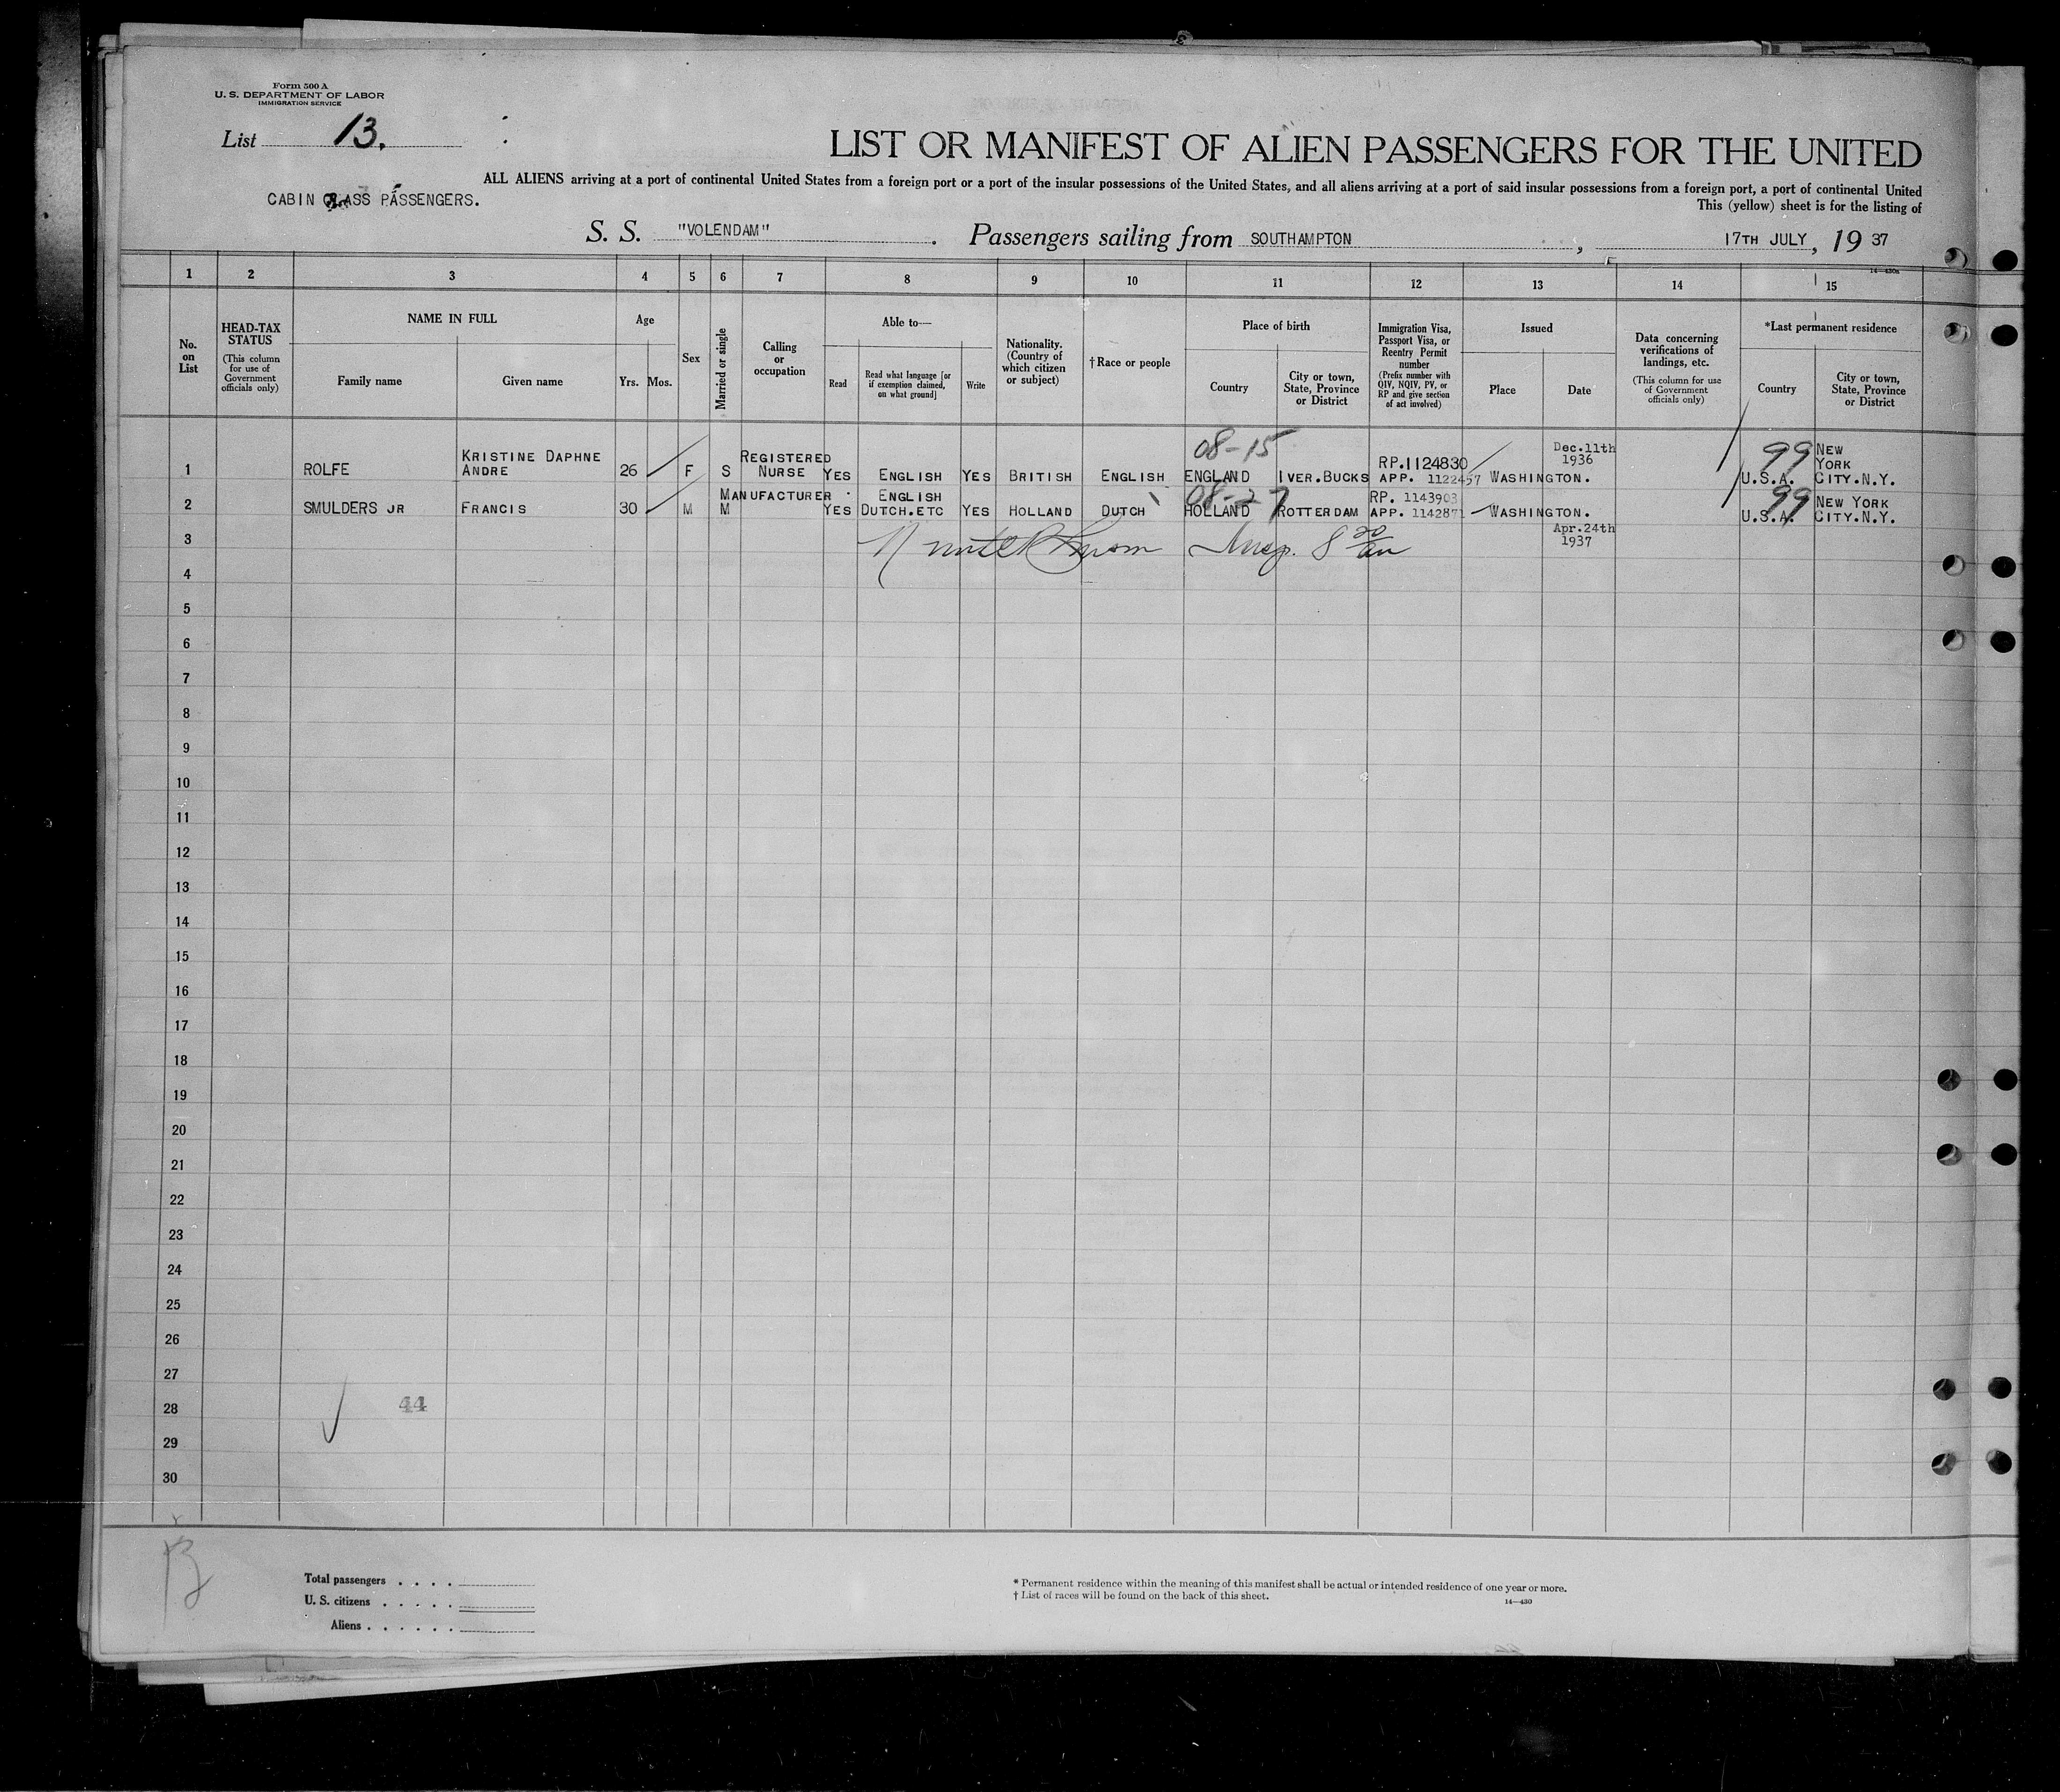 Form 500 A
U. S. DEPARTMENT OF LABOR
IMMIGRATION SERVICE
List 13.
LIST OR MANIFEST OF ALIEN PASSENGERS FOR THE UNITED
ALL ALIENS arriving at a port of continental United States from a foreign port or a port of the insular possessions of the United States, and all aliens arriving at a port of said insular possessions from a foreign port, a port of continental United
CABIN CLASS PASSENGERS.
This (yellow) sheet is for the listing of
S. S. "VOLENDAM" . Passengers sailing from SOUTHAMPTON , 17TH JULY, 19 37
14—430a
1 2 3 4 5 6 7 8 9 10 11 12 13 14 15
No. on List
HEAD-TAX STATUS
(This column for use of Government officials only)
NAME IN FULL
Family name
Given name
Age
Yrs. Mos.
Sex
Married or single
Calling or occupation
Able to—
Read
Read what language [or if exemption claimed, on what ground]
Write
Nationality. (Country of which citizen or subject)
†Race or people
Place of birth
Country
City or town, State, Province or District
Immigration Visa, Passport Visa, or Reentry Permit number
(Prefix number with QIV, NQIV, PV, or RP and give section of act involved)
Issued
Place
Date
Data concerning verifications of landings, etc.
(This column for use of Government officials only)
*Last permanent residence
Country
City or town, State, Province or District
08-15
1 ROLFE KRISTINE DAPHNE ANDRE 26 F S REGISTERED NURSE YES ENGLISH YES BRITISH ENGLISH ENGLAND IVER.BUCKS RP.1124830 APP. 1122457 WASHINGTON. Dec.11th 1936 99 U.S.A. NEW YORK CITY.N.Y.
08-27
2 SMULDERS JR FRANCIS 30 M M MANUFACTURER YES ENGLISH DUTCH.ETC YES HOLLAND DUTCH HOLLAND ROTTERDAM RP. 1143903 APP. 1142871 WASHINGTON. Apr.24th 1937 99 U.S.A. NEW YORK CITY.N.Y.
3
Insp. 8
4
5
6
7
8
9
10
11
12
13
14
15
16
17
18
19
20
21
22
23
24
25
26
27
28 44
29
30
13
Total passengers . . . .
U. S. citizens . . . . .
Aliens . . . . . .
* Permanent residence within the meaning of this manifest shall be actual or intended residence of one year or more.
† List of races will be found on the back of this sheet.
14—430